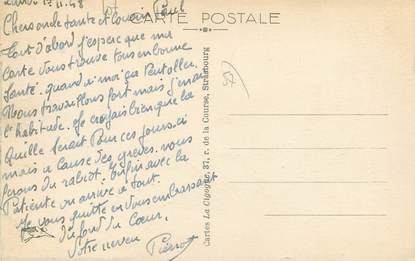 Lundi 1-11-48
CARTE POSTALE
Chers oncle tante et cousin Paul
Tout d'abord j'espère que ma
carte vous trouve tous en bonne
santé. quand à moi ça peut aller.
Nous travaillons fort mais j'en ai
l'habitude. Je croyais bien que la
Quille serait pour ces jours-ci
mais a cause des grèves, nous
ferons du rabiot. Enfin avec la
Patience on arrive a tout.
Je vous quitte en vous embrassant
du fond du Cœur,
Votre neveu Pierrot
Cartes La Cigogne, 37, r. de la Course, Strasbourg